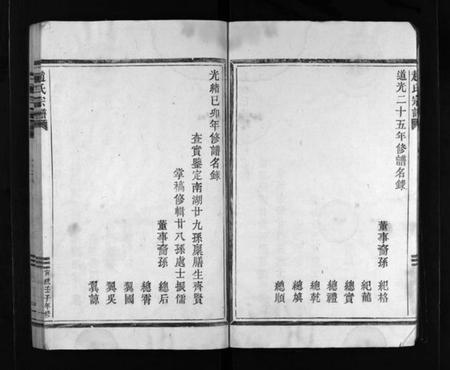 趙氏宗譜
道光二十五年修譜名錄
董事裔孫
紀格
紀龍
總實
總禮
總乾
總順
光緒己卯年修譜名錄
查實鑒定南湖廿九孫廩膳生齊賢
掌稿修輯廿八孫處士振儒
董事裔孫
總后
總霄
巽國
巽吳
巽諒
趙氏宗譜